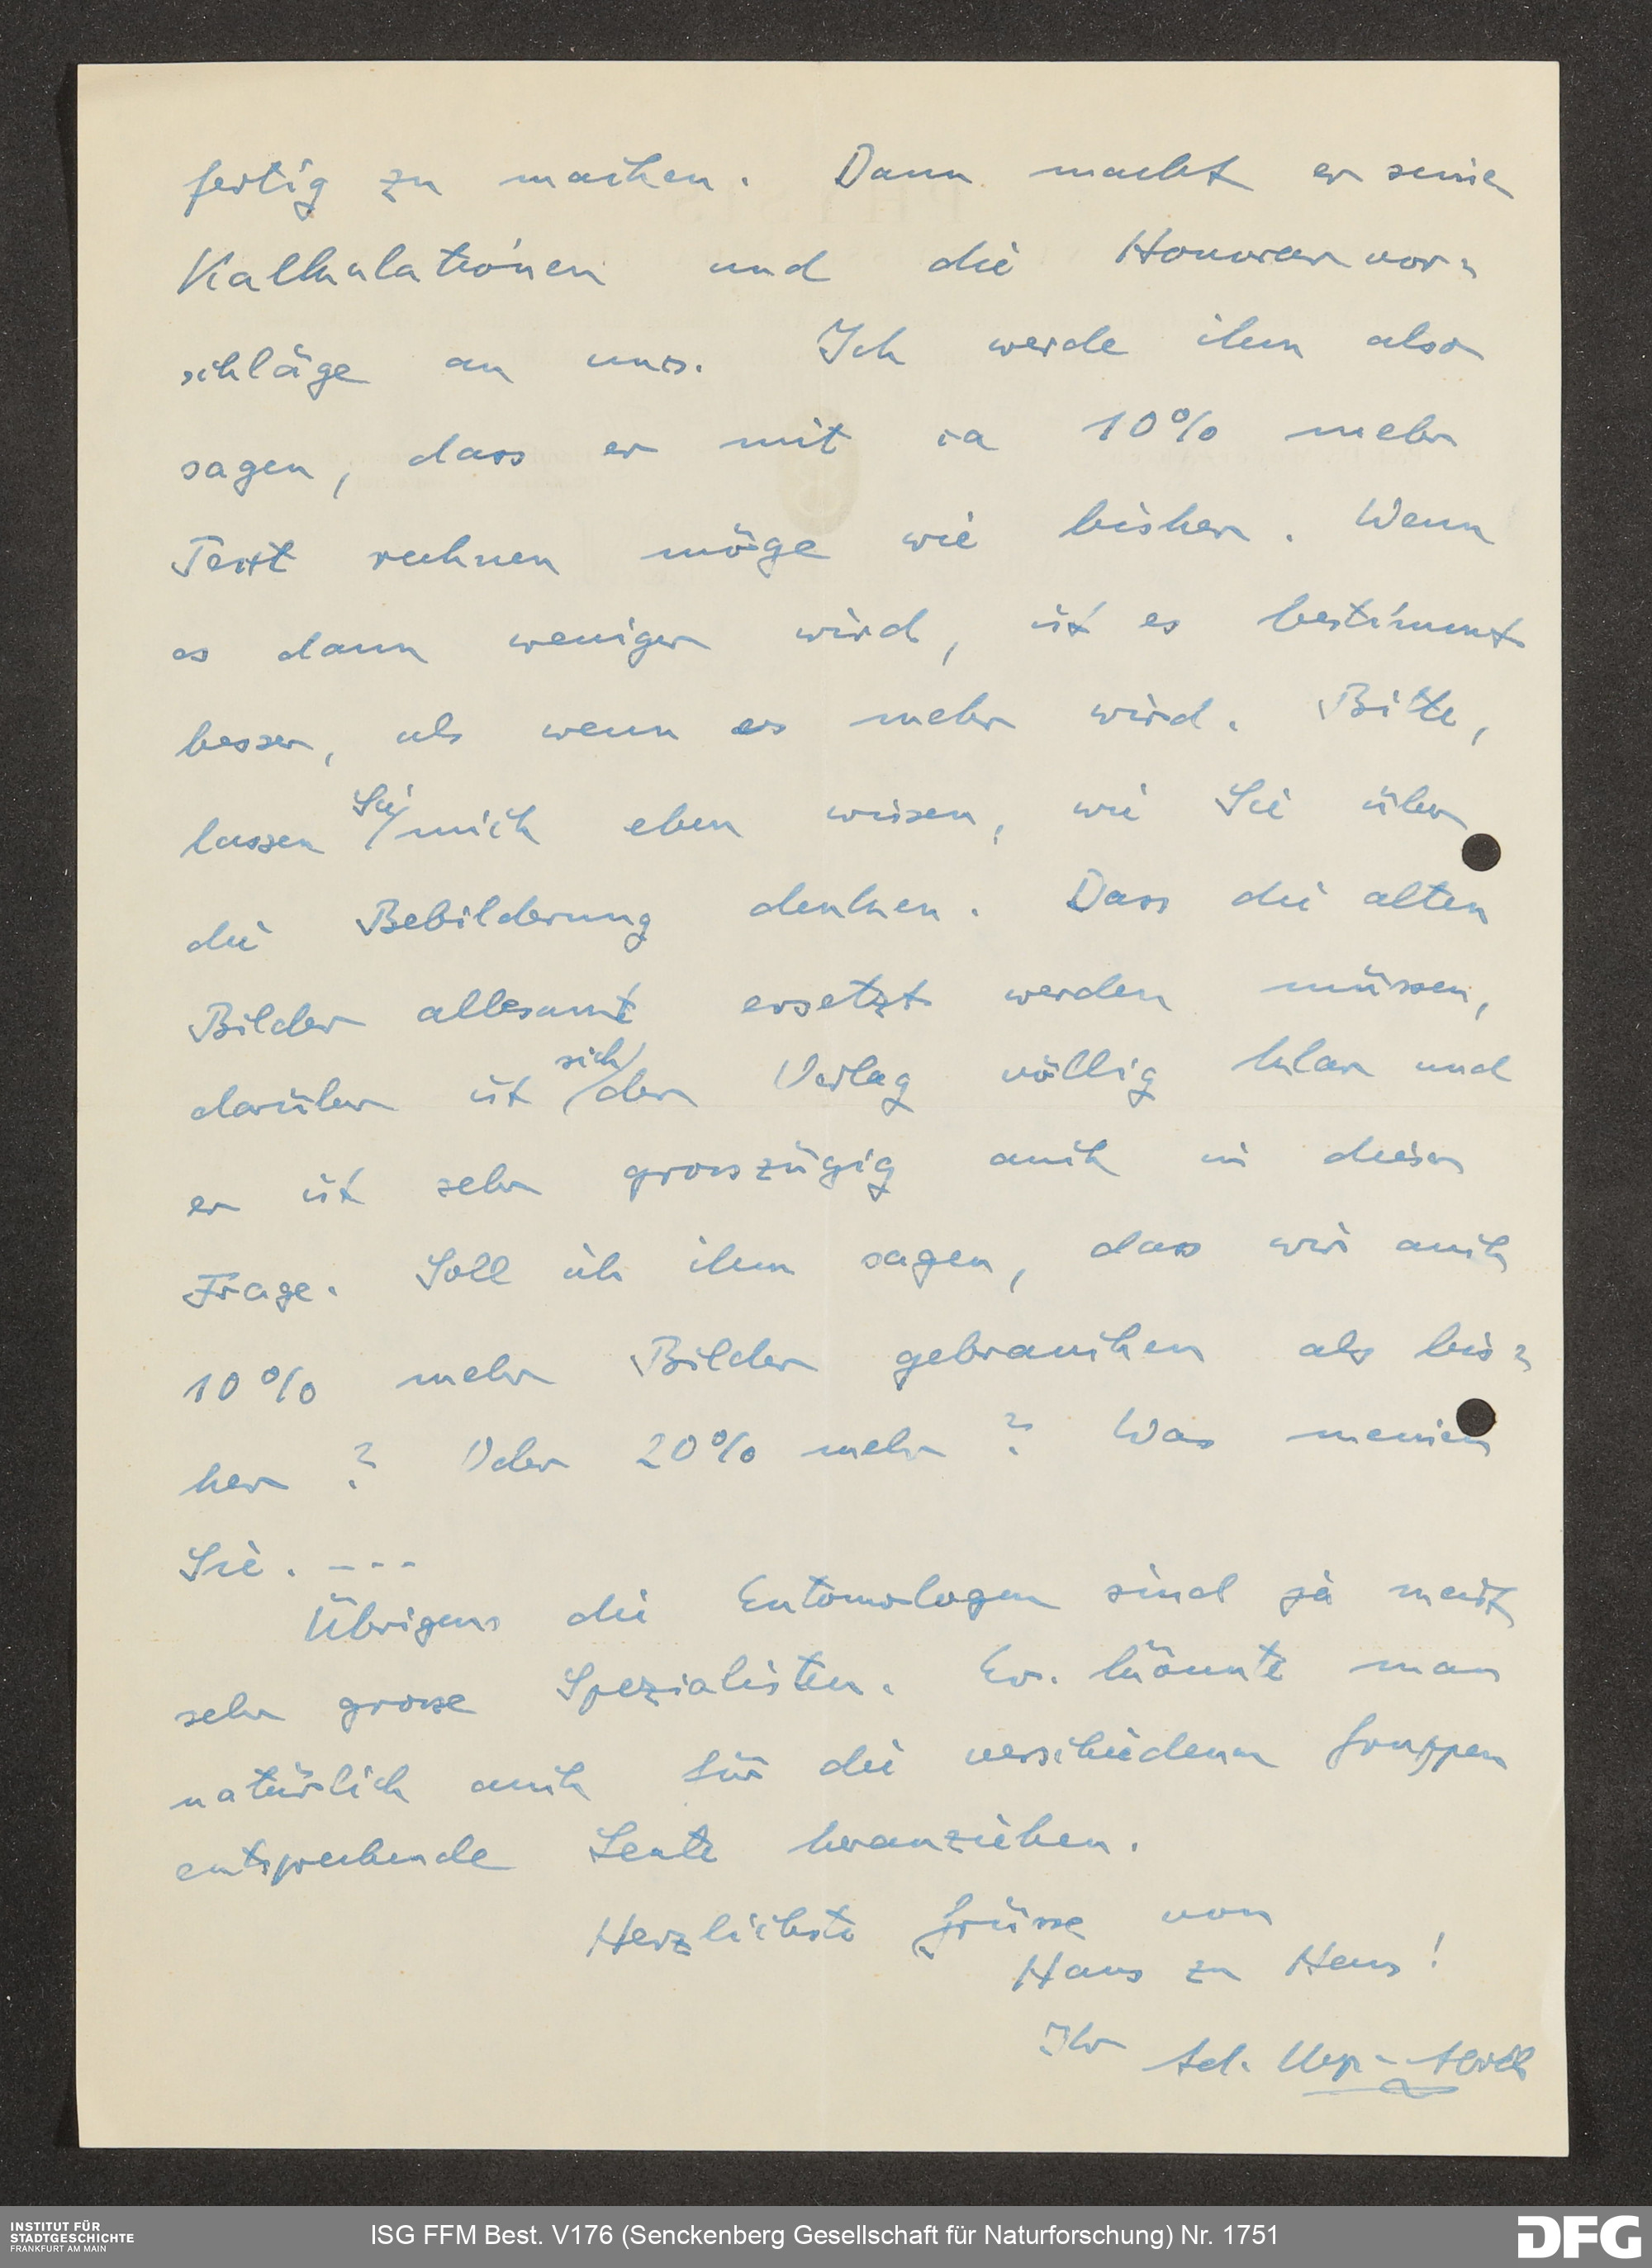 fertig zu machen. Dann macht er seine
Kalkulationen und die Honorarvor=
schläge an uns. Ich werde ihm also
sagen, dass er mit ca 10% mehr
Text rechnen möge wie bisher. Wenn
es dann weniger wird, ist es bestimmt
besser, als wenn es mehr wird. Bitte,
lassen Sie mich eben wissen, wie Sie über
die Bebilderung denken. Dass die alten
Bilder allesamt ersetzt werden müssen,
darüber ist sich der Verlag völlig klar und
er ist sehr groszügig auch in dieser
Frage. Soll ich ihm sagen, dass wir auch
10% mehr Bilder gebrauchen als bis=
her? Oder 20% mehr? Was meinen
Sie. ---
Übrigens die Entomologen sind ja meist
sehr grosse Spezialisten. Ev. könnte man
natürlich auch für die verschiedenen Gruppen
entsprechende Leute heranziehen.
Herzlichste Grüsse von
Haus zu Haus!
Ihr
INSTITUT FÜR
STADTGESCHICHTE
FRANKFURT AM MAIN
ISG FFM Best. V176 (Senckenberg Gesellschaft für Naturforschung) Nr. 1751
DFG